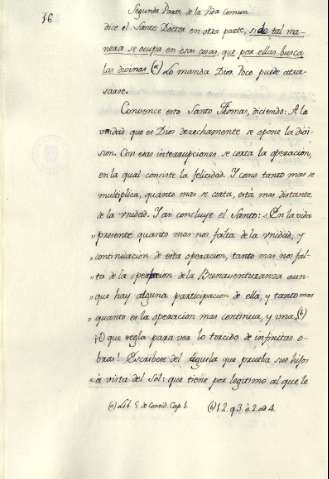 16
Segunda Parte de la Vida Comun
dice el Santo Doctor en otra parte, si de tal ma-
nera se ocupa en esas cosas, que por ellas busca
las divinas. (a) Lo manda Dios. Poco puede atra-
sarse.
Convence esto Santo Thomas, diciendo: A la
vnidad que es Dios derechamente se opone la divi-
sion. Con esas interrupciones se corta la operacion,
en la qual consiste la felicidad. Y como tanto mas se
multiplica, quanto mas se corta, està mas distante
de la vnidad. Y asi concluye el Santo: En la vida
" presente quanto mas nos falta de la vnidad, y
" continuacion de esta operacion, tanto mas nos fal-
" ta de la perfeccion de la Buenaventuranza aun-
" que hay alguna participacion de ella, y tanto mas
" quanto es la operacion mas continua, y vna. (b)
¡O que regla para ver lo torcido de infinitas o-
bras! Escarbese del Aguila que prueba sus hijos
à vista del Sol: que tiene por legitimo al que le
(a) Lib. 5 de Consid. Cap. 1. (b) 1. 2. q. 3. à. 2. ad 4.